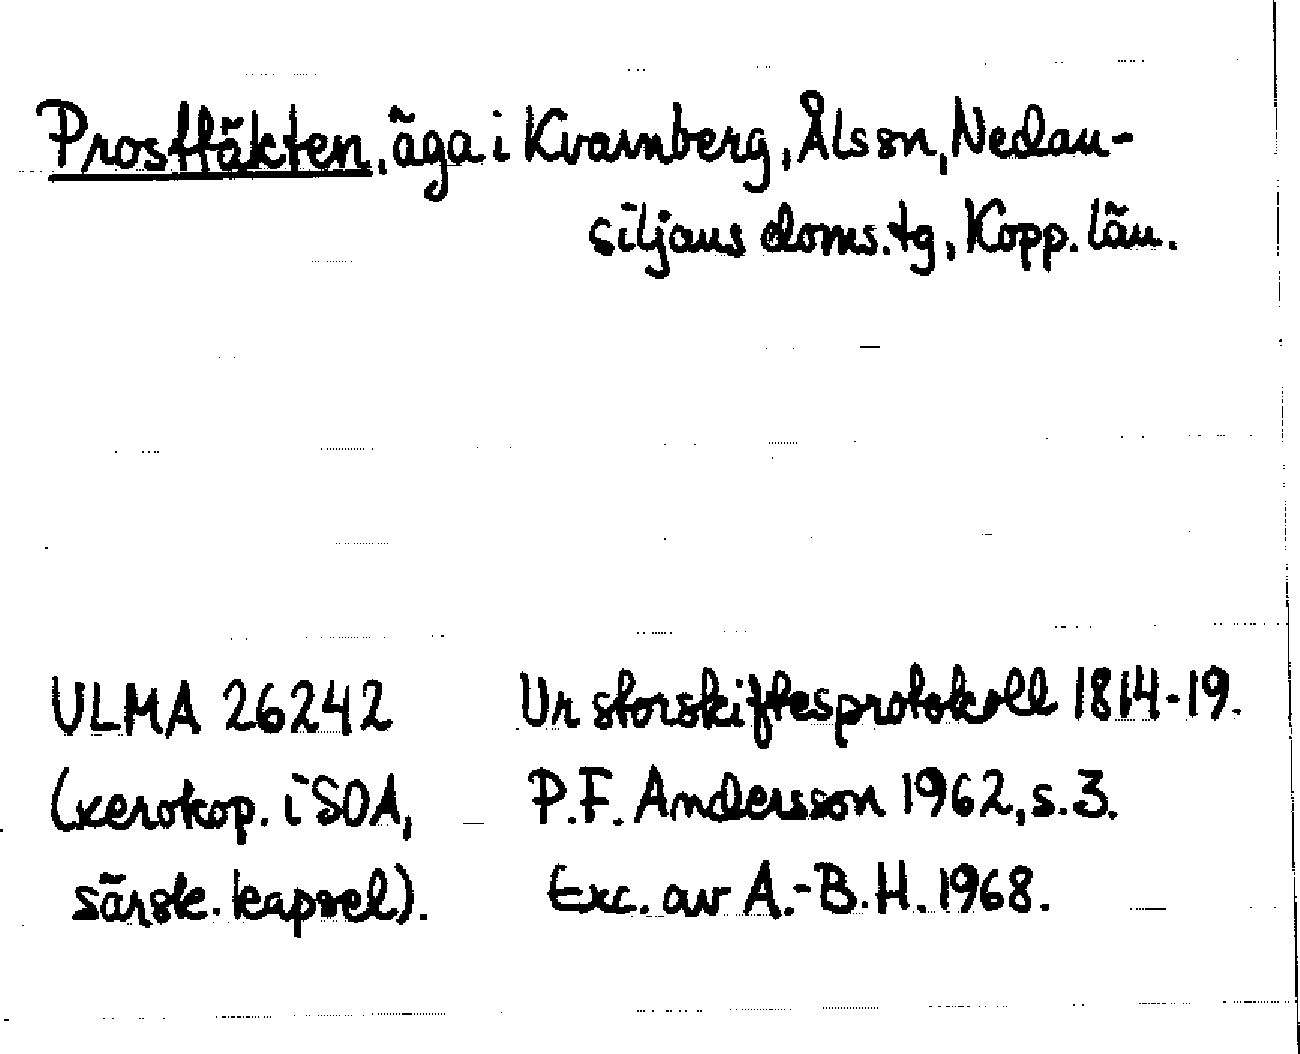 Prosttäkten, äga i Kvarnberg, Åls sn, Nedan-
siljans doms.tg, Kopp. län.
ULMA 26242 Ur storskiftesprotokoll 1814-19.
(xerokop. i SOA, P.F. Andersson 1962, s.3.
särsk. kapsel). Exc. av A.-B.H. 1968.